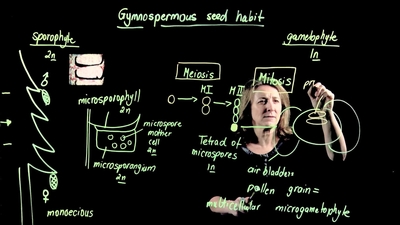 Gymnospermous seed habit
sporophyte
2n
gametophyte
1n
Meiosis
Mitosis
MI
MII
microsporophyll
2n
microspore
mother
cell
2n
microsporangium
2n
Tetrad of
microspores
1n
air bladders
pollen grain =
multicellular microgametophyte
monoecious
♂
♀